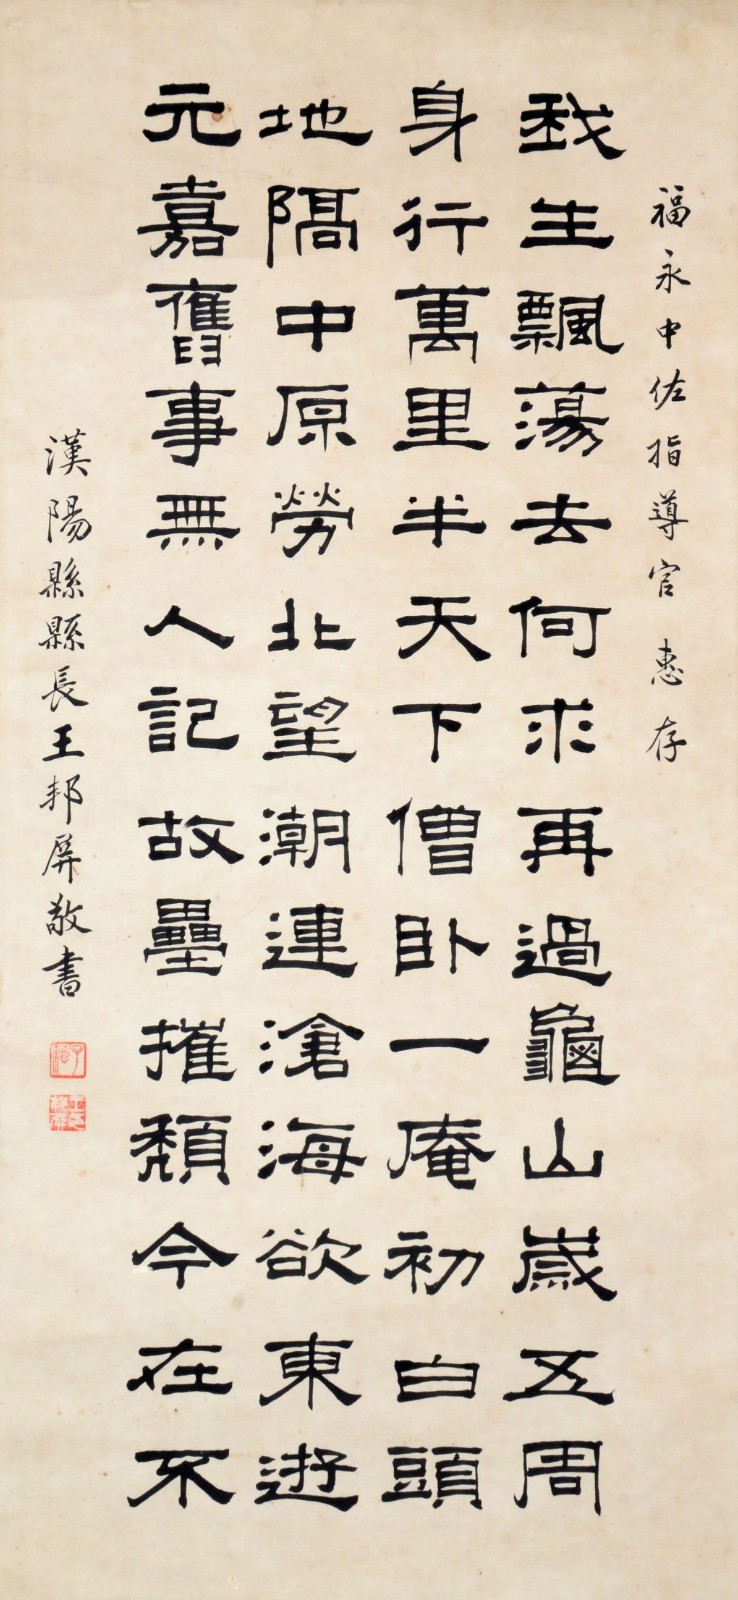 福永中佐指導官惠存
我生飄蕩去何求再過龜山歲五周
身行萬里半天下僧臥一庵初白頭
地隔中原勞北望潮連滄海欲東遊
元嘉舊事無人記故壘摧頹今在不
漢陽縣縣長王邦屏敬書